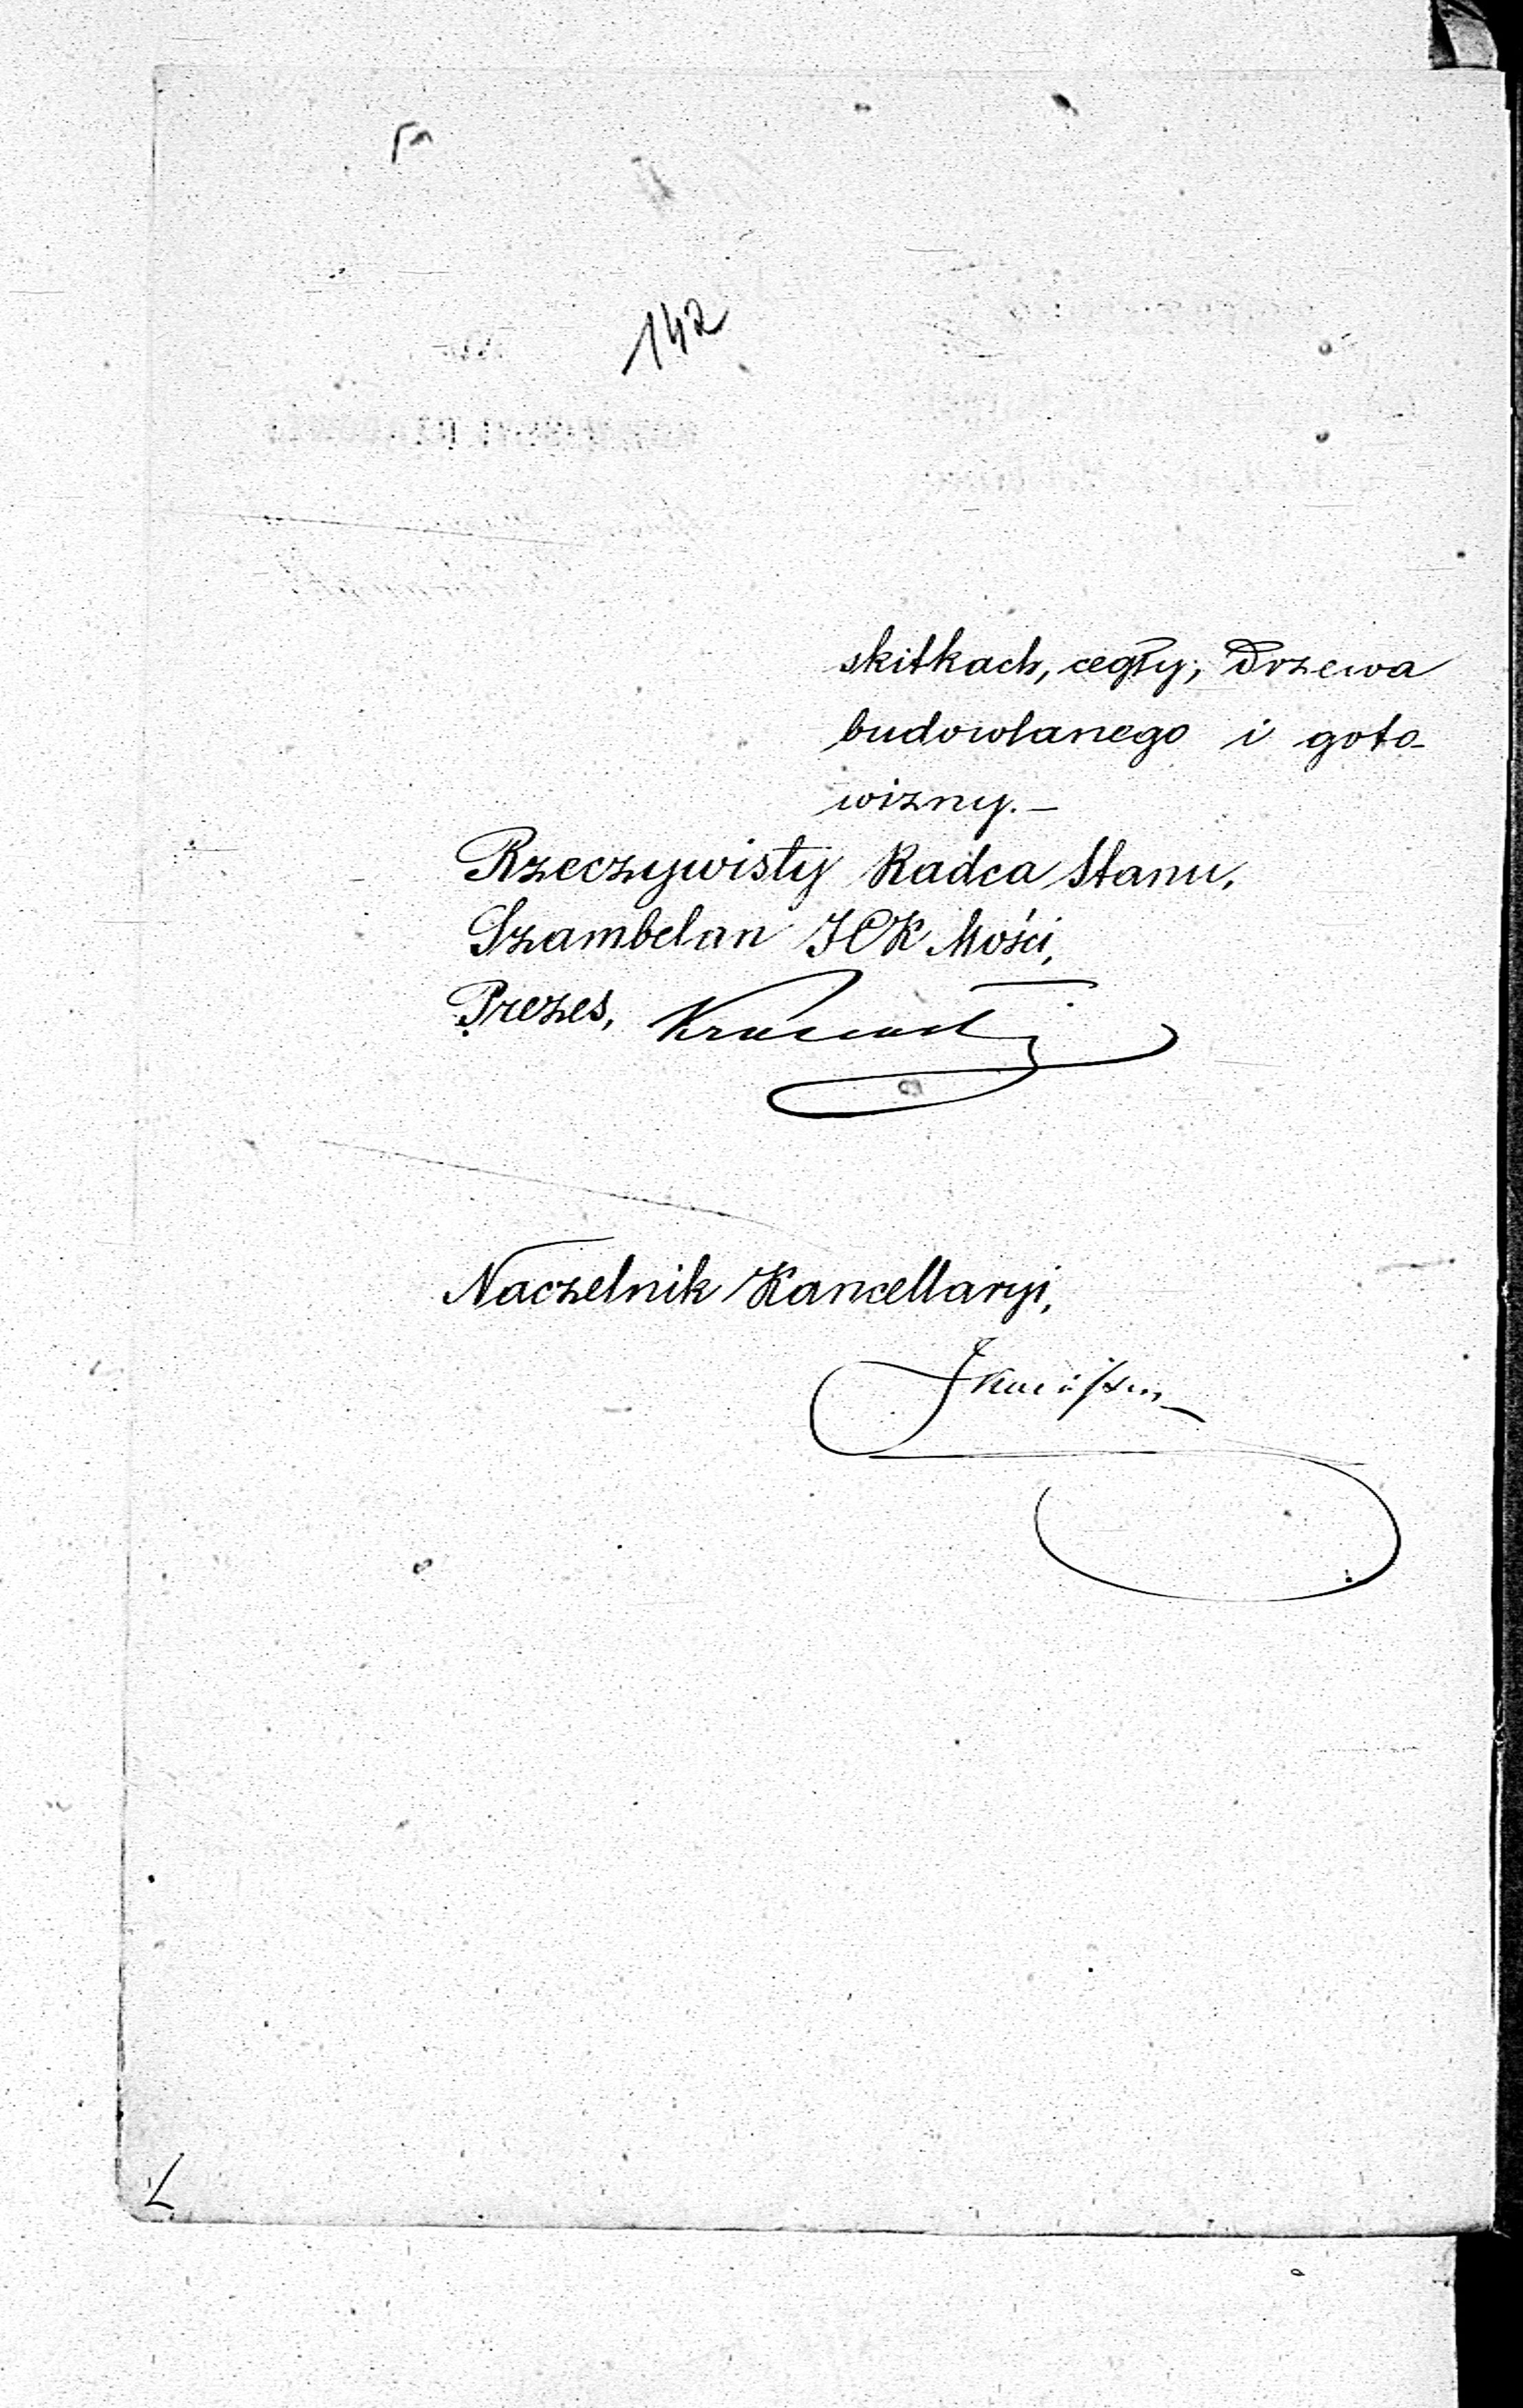 142
skitkach, cegły, Drzewa
budowlanego i goto-
wizny.—
Rzeczywisty Radca Stanu,
Szambelan JCK Mości,
Prezes,
Naczelnik Kancellaryi,